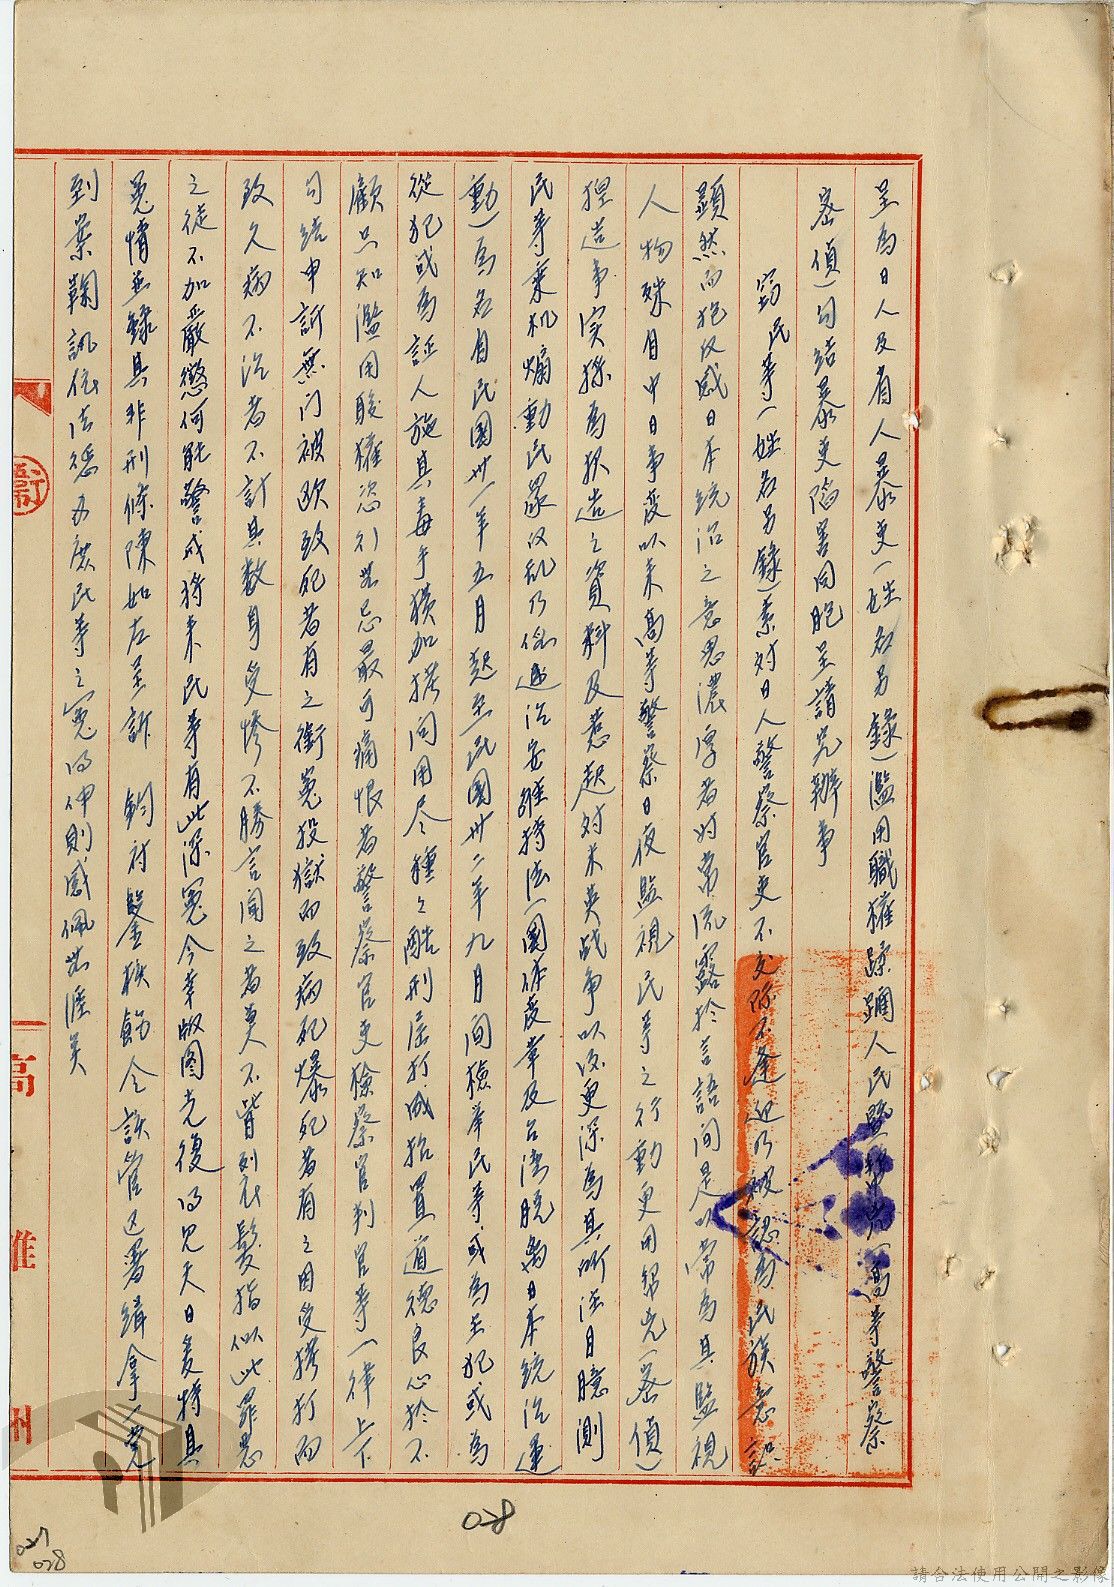 呈為日人及省人暴吏(姓名另錄)濫用職權蹂躪人民暨幫兇(高等警察
密偵)勾結暴吏陷害同胞呈請究辦事
竊民等(姓名另錄)素对日人警察官吏不交際不逢迎乃被認為民族意識
顕然而抱反感日本統治之意思濃厚者时常流露於言語间是以常為其監視
人物殊自中日事变以来高等警察日夜監視民等之行動更用幫兇(密偵)
捏造事実採為捏造之資料及惹起对米英战争以後更深為其所注目臆測
民等乘机煽動民眾反乱乃治安維持法(團体变革及台湾脱离日本統治運
動)為名自民國卅一年五月起至民國卅二年九月间檢挙民等或為主犯或為
從犯或為証人施其毒手横加拷问用尽種々酷刑屈打成招置道德良心於不
顧只知濫用職權恣行無忌最可痛恨者警察官吏檢察官判官等一律上下
勾結申訴無门被欧致死者有之銜冤投獄而致病死爆死者有之因受拷打而
致久病不治者不計其数身受惨不勝言闻之者莫不眥裂髪指似此罪惡
之徒不加嚴懲何能警戒将来民等有此深冤今幸版图光復得見天日爰特具
冤情並錄其非刑條陳如左呈訴 鈞付鑒核飭令該管区署緝拿一党
到案鞠訊依法懲办庶民等之冤得伸則感佩無涯矣
高雄州
028
027
028
請合法使用公開之影像